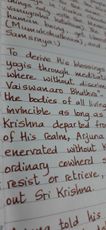 things
vanquishable
human being, get
(Mumukshutwa), and
Sannyasa!)
To derive His blessings
yogis through meditat
where without discrim
Vaiswanaro Bhutva"
the bodies of all living
Invincible as long as
Krishna departed from
of His Realm, Arjuna
enervated without
ordinary cowherd
resist or retrieve,
out Sri Krishna.
told his